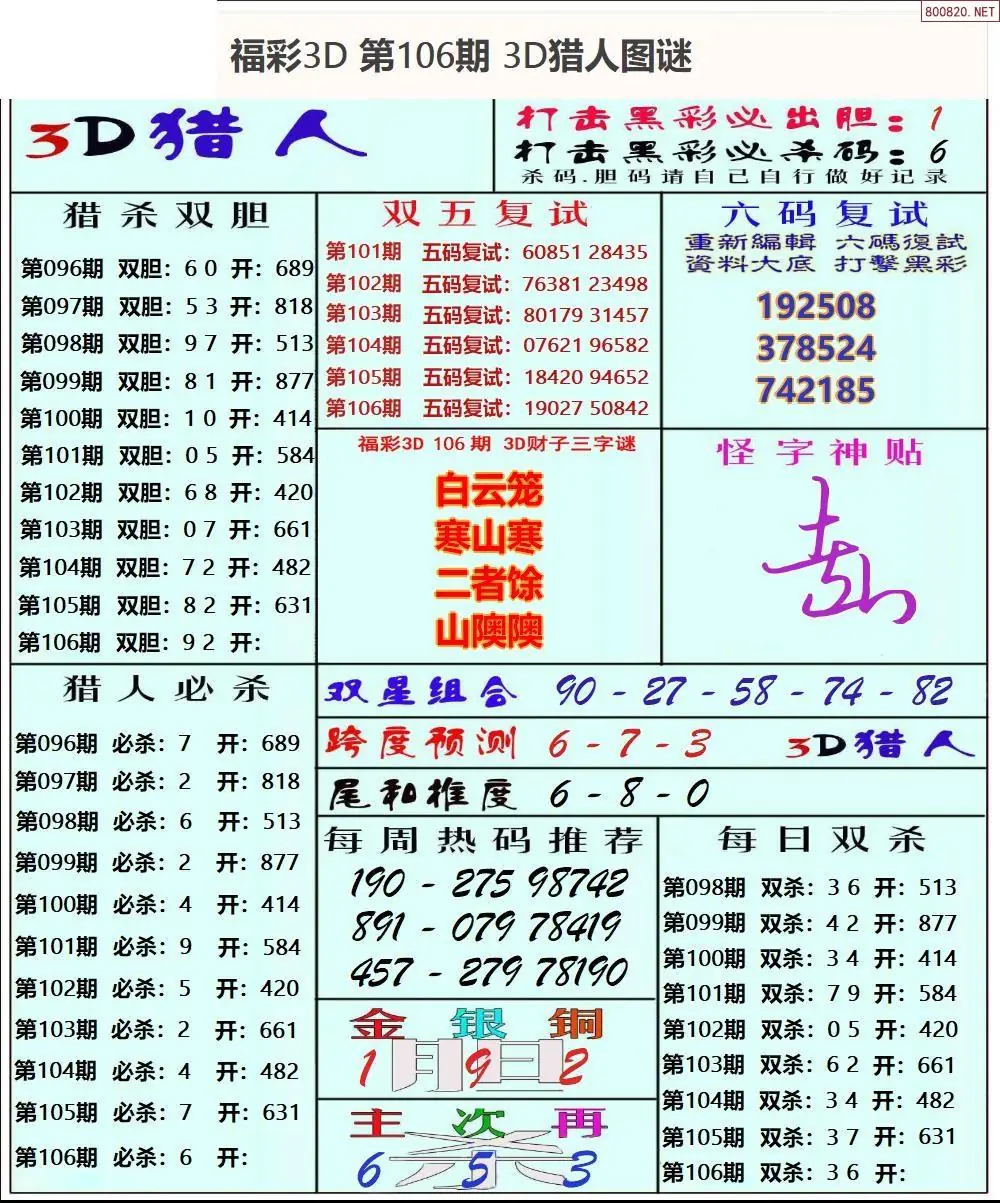 800820.NET
福彩3D 第106期 3D猎人图谜
3D猎人
打击黑彩必出胆：1
打击黑彩必杀码：6
杀码.胆码请自己自行做好记录
猎杀双胆
第096期 双胆：6 0 开：689
第097期 双胆：5 3 开：818
第098期 双胆：9 7 开：513
第099期 双胆：8 1 开：877
第100期 双胆：1 0 开：414
第101期 双胆：0 5 开：584
第102期 双胆：6 8 开：420
第103期 双胆：0 7 开：661
第104期 双胆：7 2 开：482
第105期 双胆：8 2 开：631
第106期 双胆：9 2 开：
双五复试
第101期 五码复试：60851 28435
第102期 五码复试：76381 23498
第103期 五码复试：80179 31457
第104期 五码复试：07621 96582
第105期 五码复试：18420 94652
第106期 五码复试：19027 50842
六码复试
重新編輯 六碼復試
資料大底 打擊黑彩
192508
378524
742185
福彩3D 106期 3D财子三字谜
白云笼
寒山寒
二者馀
山隩隩
怪字神贴
猎人必杀
第096期 必杀：7 开：689
第097期 必杀：2 开：818
第098期 必杀：6 开：513
第099期 必杀：2 开：877
第100期 必杀：4 开：414
第101期 必杀：9 开：584
第102期 必杀：5 开：420
第103期 必杀：2 开：661
第104期 必杀：4 开：482
第105期 必杀：7 开：631
第106期 必杀：6 开：
双星组合 90 - 27 - 58 - 74 - 82
跨度预测 6 - 7 - 3 3D猎人
尾和推度 6 - 8 - 0
每周热码推荐
190 - 275 98742
891 - 079 78419
457 - 279 78190
金 银 铜
胆
1 9 2
主 次 再
杀
6 5 3
每日双杀
第098期 双杀：3 6 开：513
第099期 双杀：4 2 开：877
第100期 双杀：3 4 开：414
第101期 双杀：7 9 开：584
第102期 双杀：0 5 开：420
第103期 双杀：6 2 开：661
第104期 双杀：3 4 开：482
第105期 双杀：3 7 开：631
第106期 双杀：3 6 开：